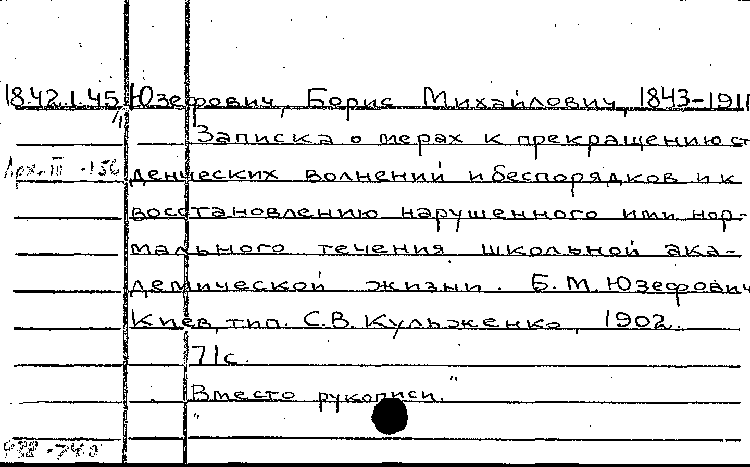 18.42.1.45 Юзефович, Борис Михайлович, 1843-1911
Записка о мерах к прекращению ст
денческих волнений и беспорядков и к
восстановлению нарушенного ими нор-
мального течения школьной ака-
демической жизни. Б.М. Юзефович
Киев, тип. С.В. Кульженко, 1902.
71с.
"Вместо рукописи."